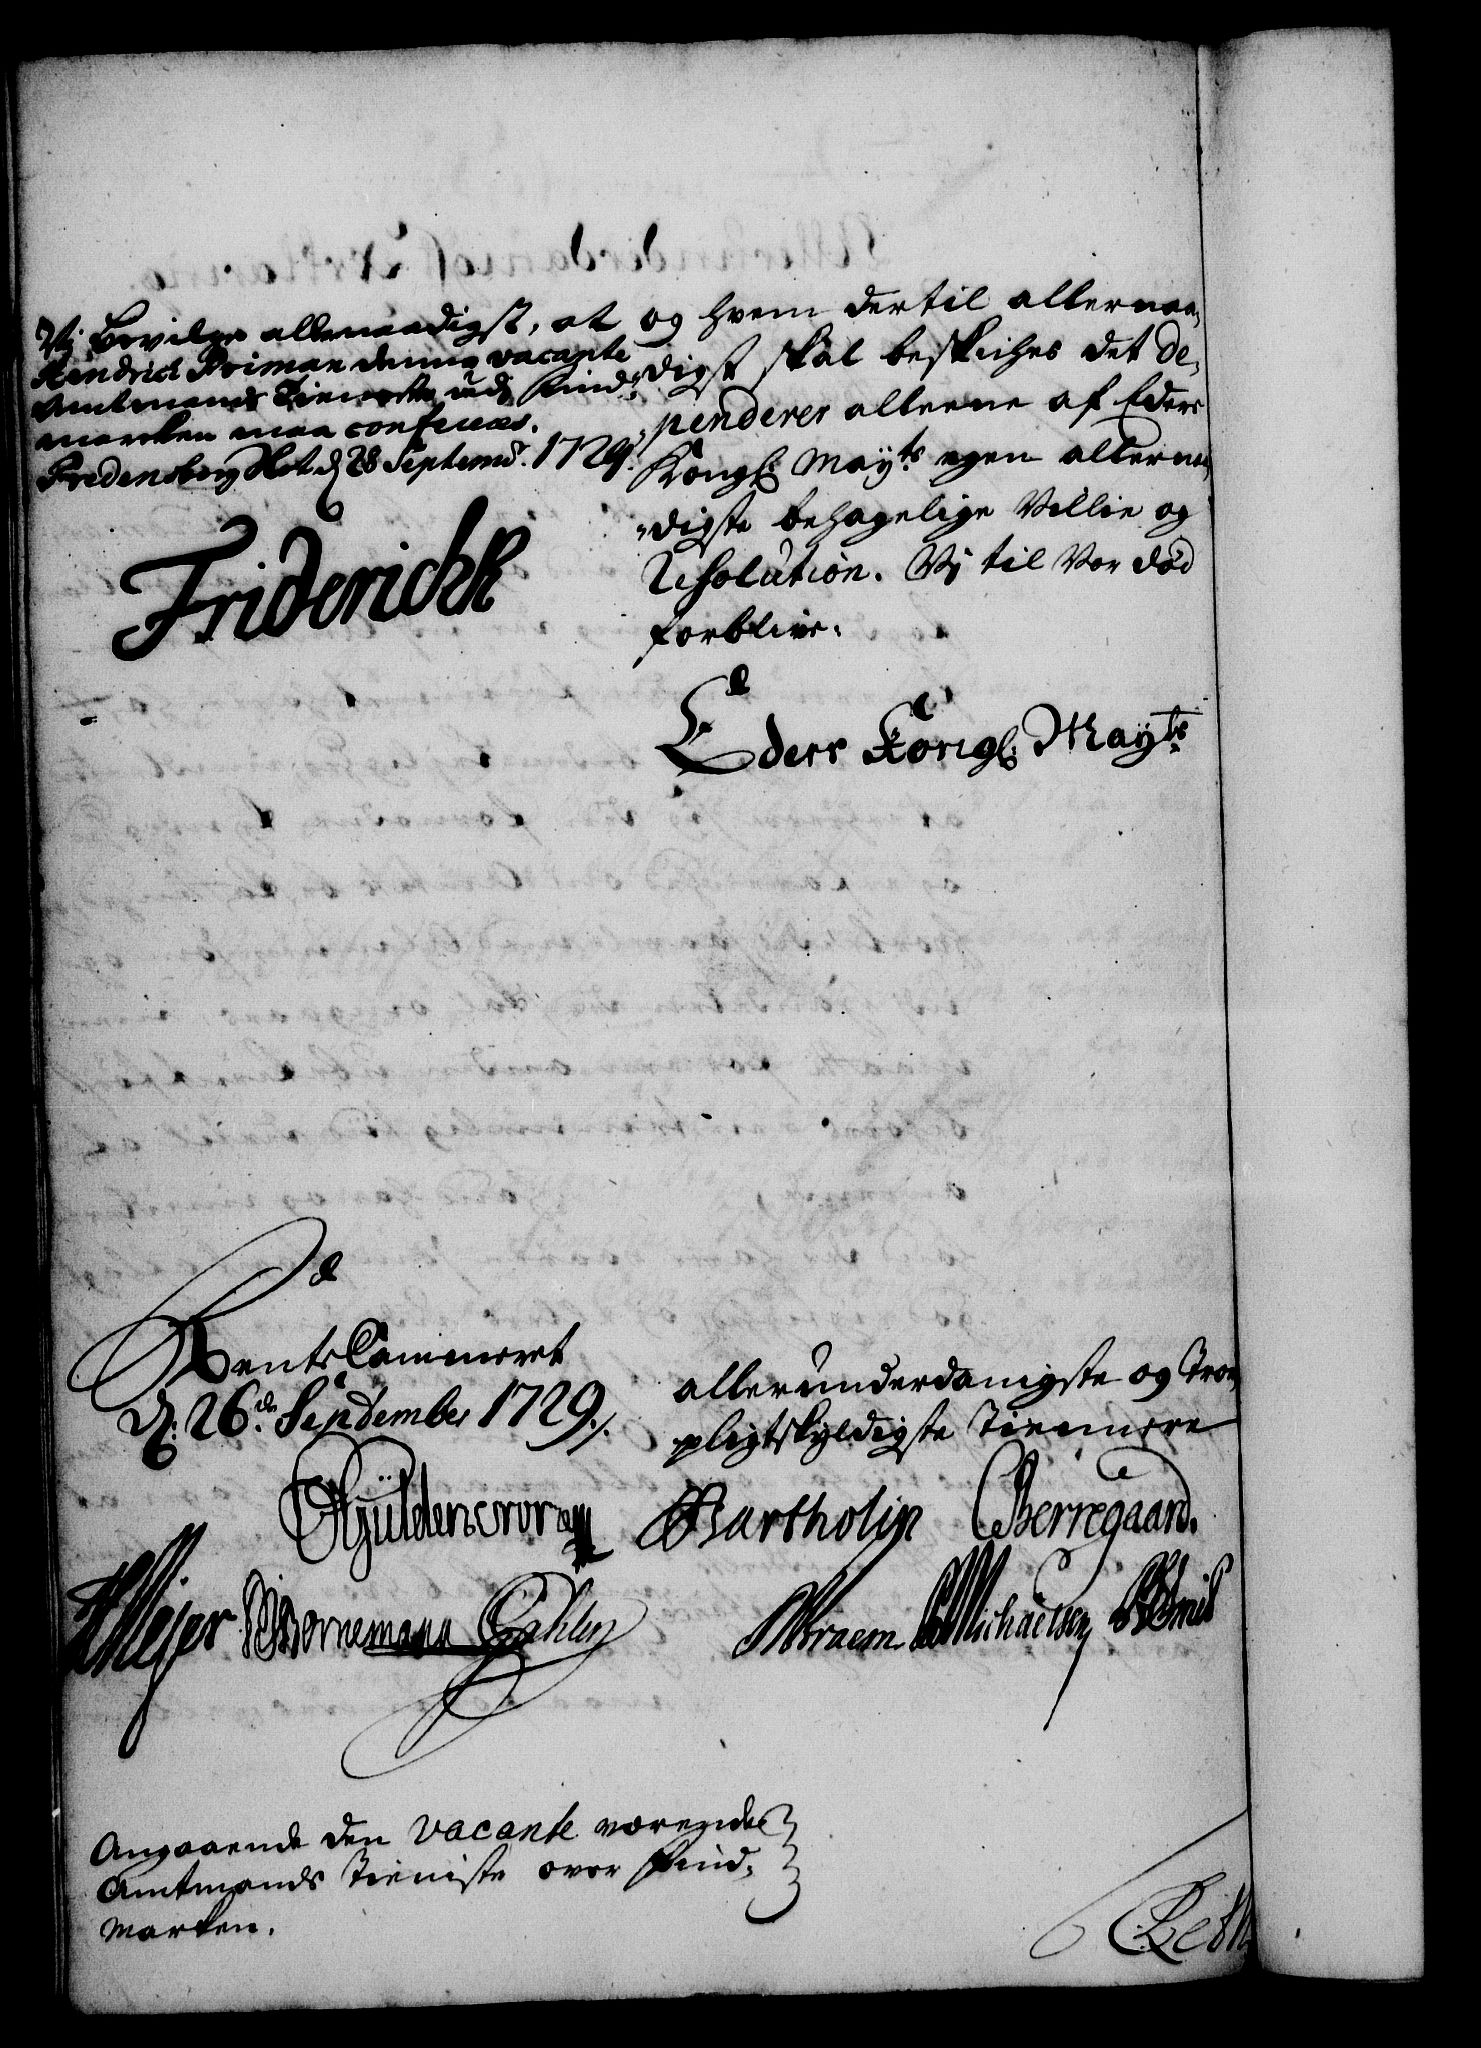 Vi bevilge allernaadigst, at
Hendrich Priman denne vacante
Amtmands Tieneste udj Find-
marcken maa conferes.
Fredensborg Slot d 28 Septembr. 1729.
Friderich R
og hvem dertil allernaa-
digst skal beskikkes det de-
penderer alleene af Eders
Kongl: Mayts egen allernaa-
digste behagelige Villie og
Resolution. Vi til Vor død
forblive.
Eders Kongl: Mayts
RenteCammeret
d: 26de September 1729./.
allerunderdanigste og Troe
pligtskyldigste Tiennere
Güldencrone Bartholin Berregaard.
Mejer Bornemann
Braem Michaelsen
Angaaende den vacante værende
Amtmands Tieniste over Find-
Marken.